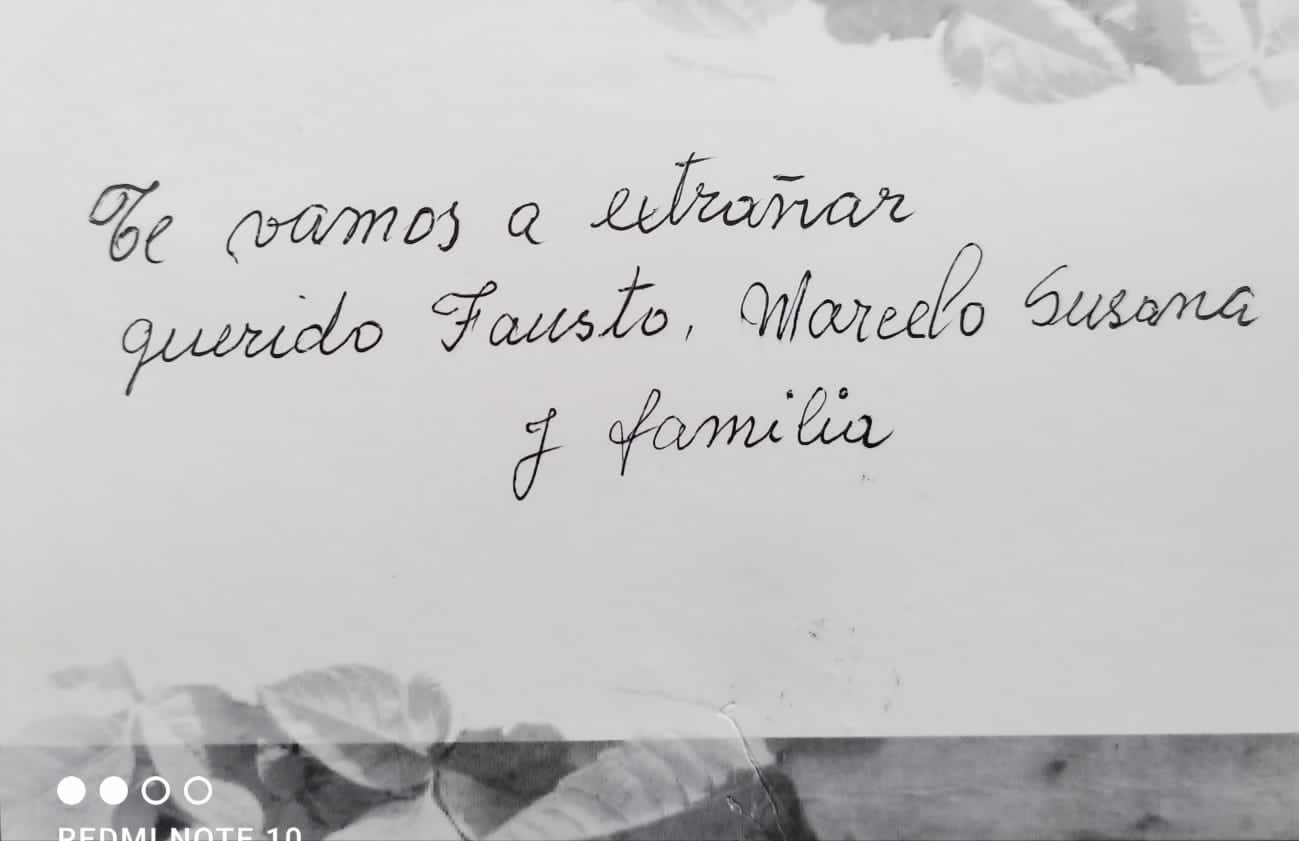 Te vamos a extrañar
querido Fausto, Marcelo Susana
y familia
REDMI NOTE 10